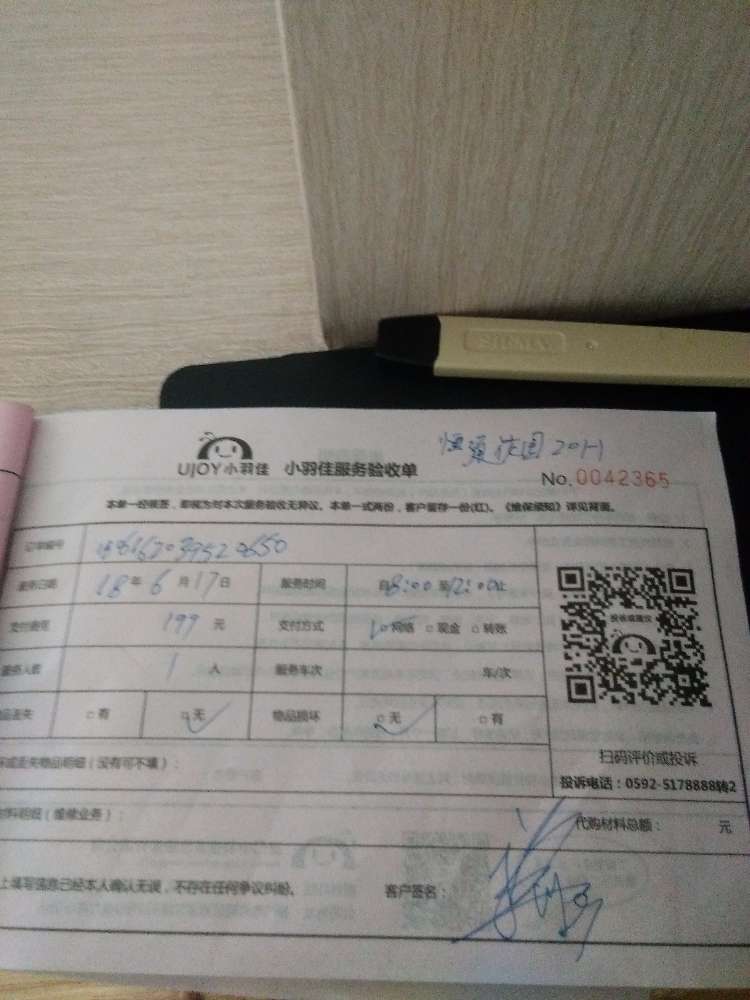 UJOY小羽佳 小羽佳服务验收单
No.0042365
本单一经签署，即视为对本次服务验收无异议。本单一式两份，客户留存一份(红)。《维保须知》详见背面。
订单编号
服务日期 18年6月17日 服务时间 自8:00至12:00止
支付费用 199元 支付方式 □网络 □现金 □转账
服务人数 1人 服务车次 车/次
品丢失 □有 □无 物品损坏 □无 □有
投诉或建议
扫码评价或投诉
投诉电话：0592-5178888转2
坏或丢失物品明细（没有可不填）：
材料明细（维修业务）： 代购材料总额： 元
上填写信息已经本人确认无误，不存在任何争议纠纷。 客户签名：